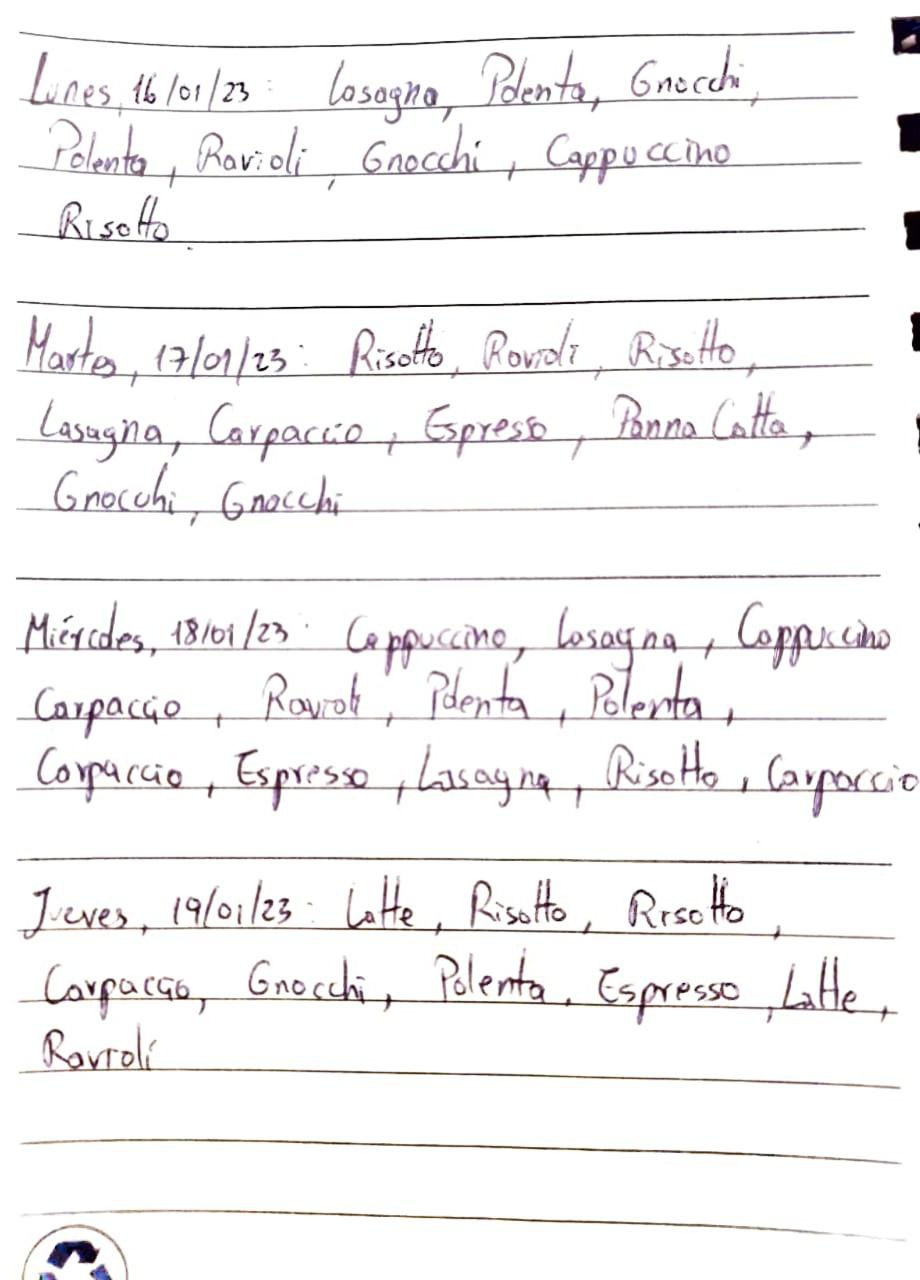 Lunes, 16/01/23: Lasagna, Polenta, Gnocchi,
Polenta, Ravioli, Gnocchi, Cappuccino
Risotto.
Martes, 17/01/23: Risotto, Ravioli, Risotto,
Lasagna, Carpaccio, Espresso, Panna Cotta,
Gnocchi, Gnocchi
Miércoles, 18/01/23: Cappuccino, Lasagna, Cappuccino
Carpaccio, Ravioli, Polenta, Polenta,
Carpaccio, Espresso, Lasagna, Risotto, Carpaccio
Jueves, 19/01/23: Latte, Risotto, Risotto,
Carpaccio, Gnocchi, Polenta, Espresso, Latte,
Ravioli